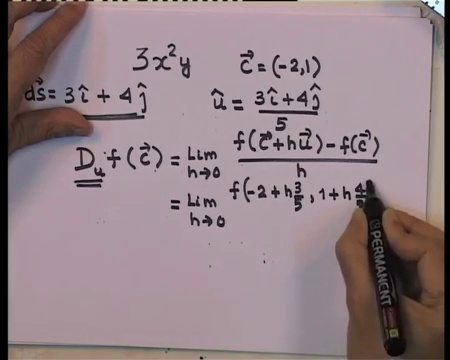 3x²y  c⃗ = (-2,1)
ds⃗ = 3î + 4ĵ  û = (3î + 4ĵ)/5
D_u f(c⃗) = Lim h→0 (f(c⃗ + hu⃗) - f(c⃗))/h
= Lim h→0 f(-2 + h 3/5 , 1 + h 4
PERMANENT